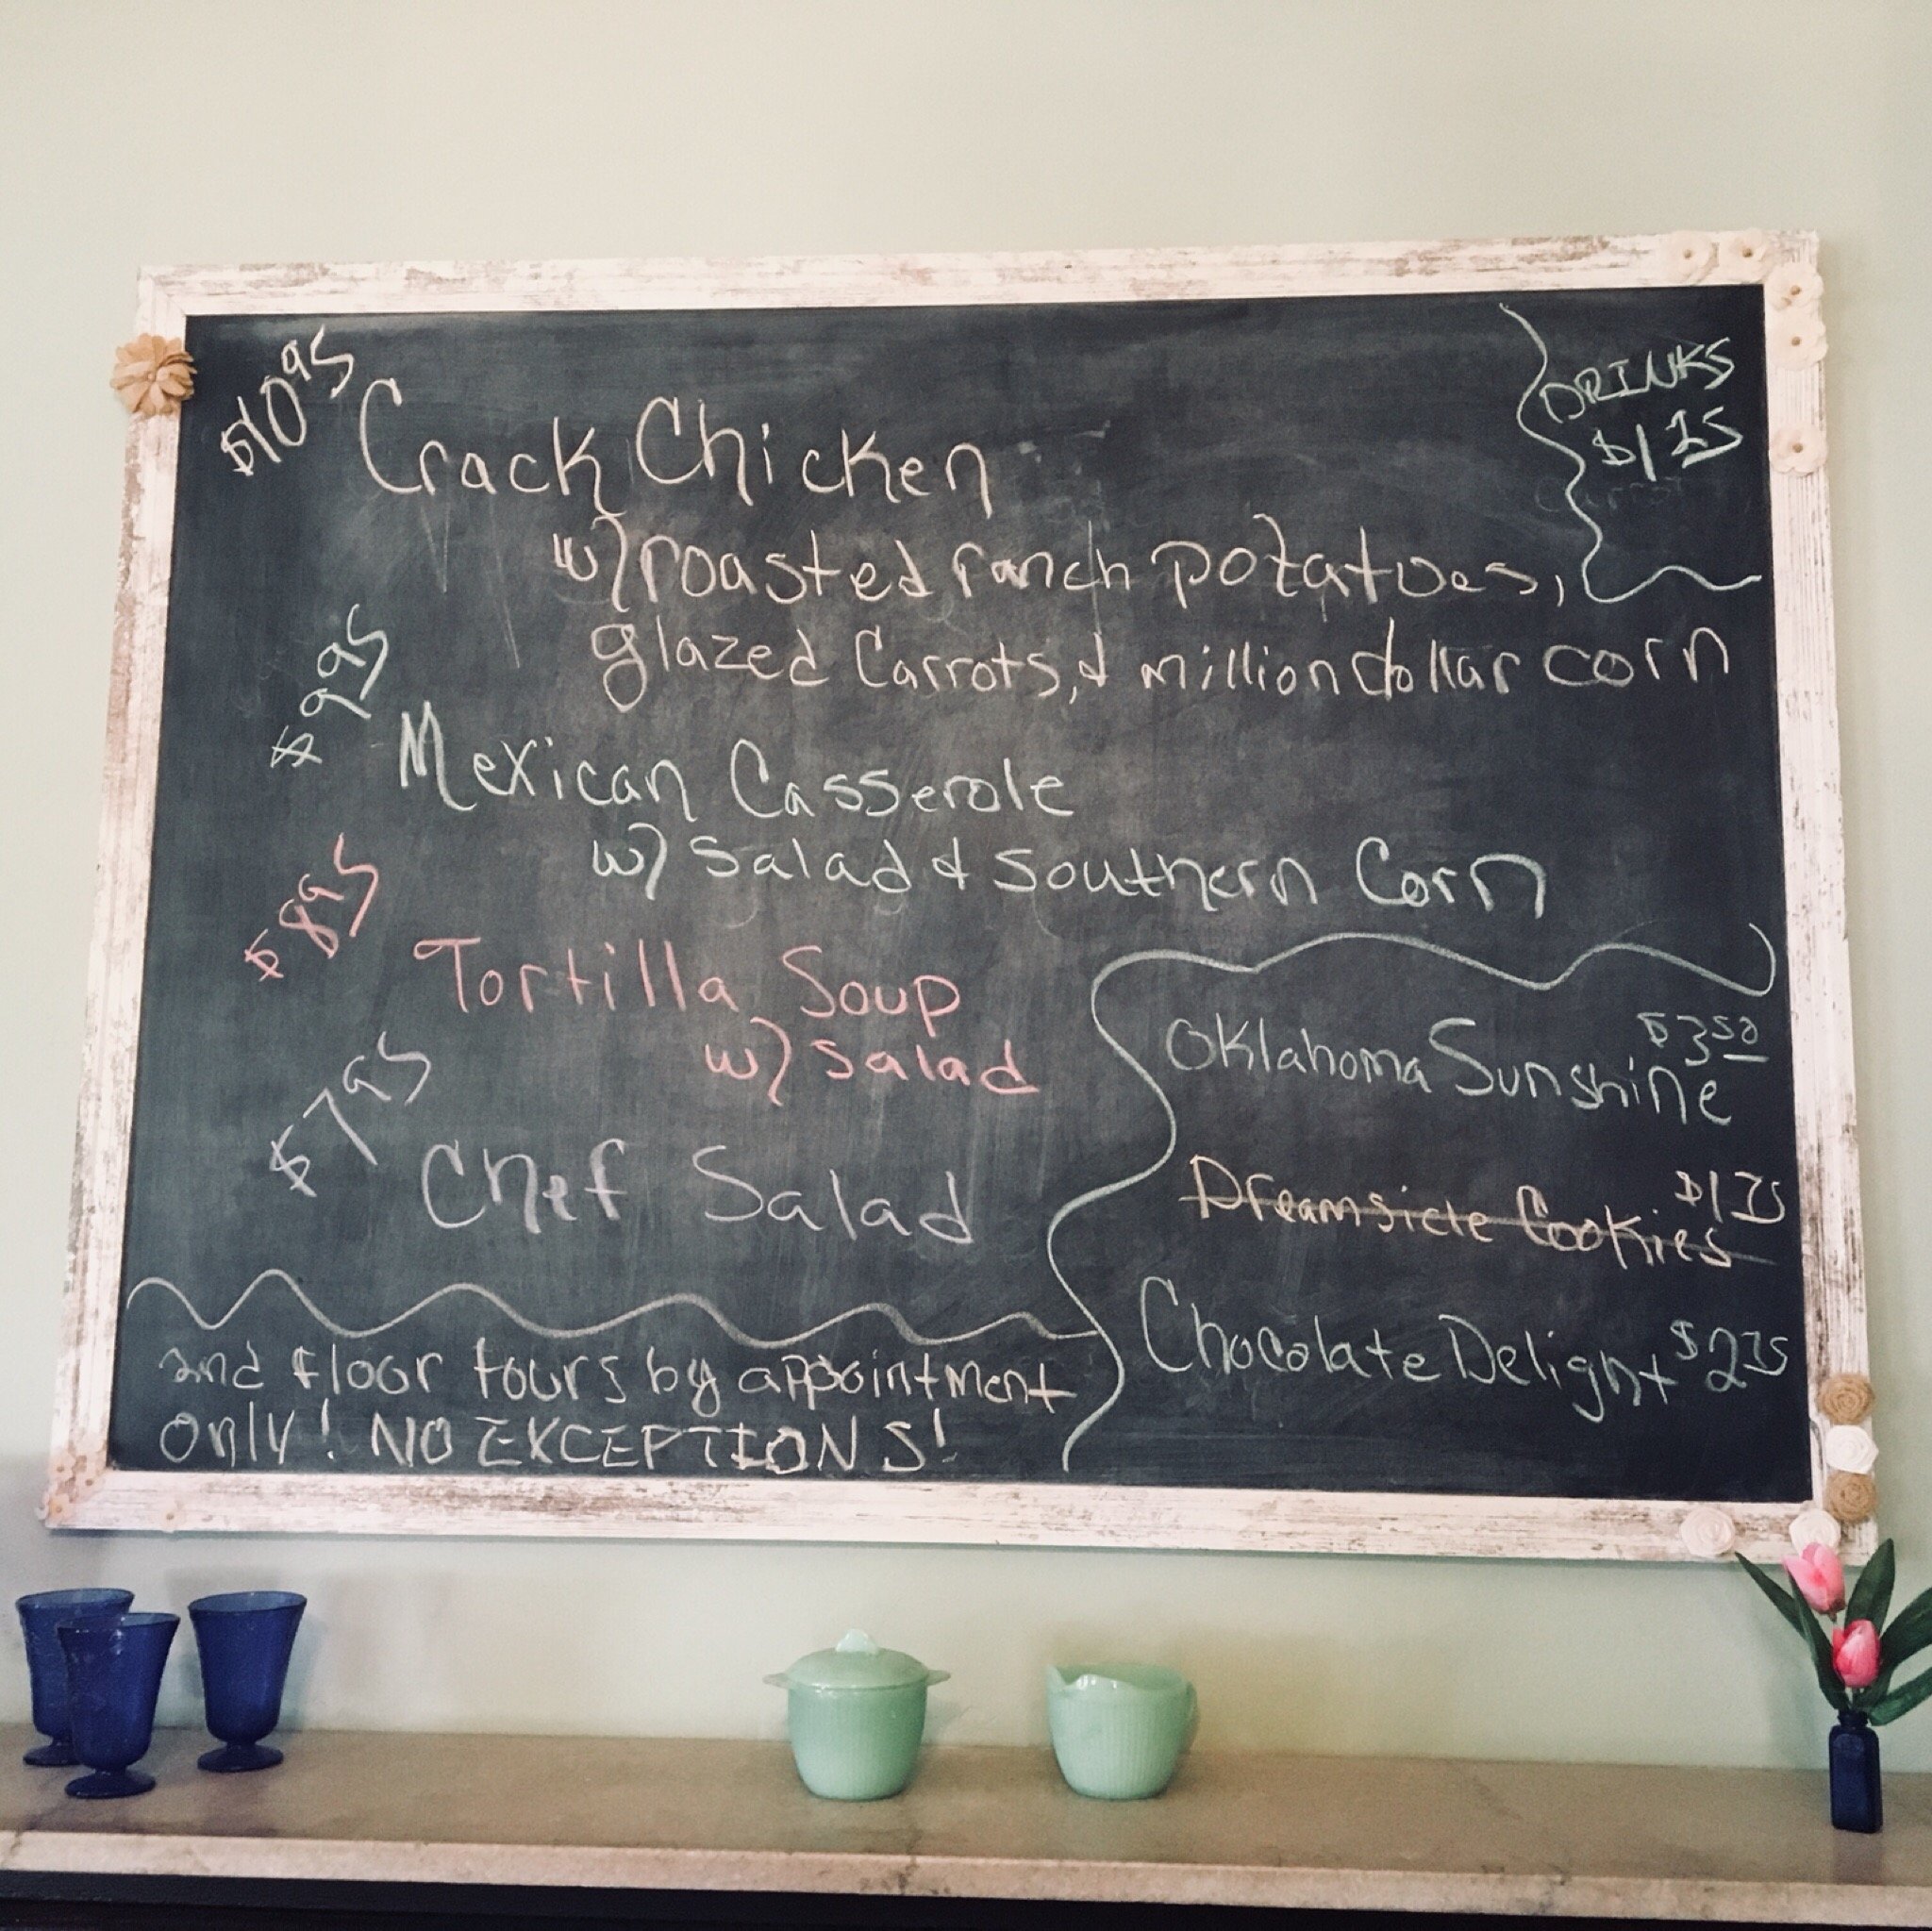 $10.95 Crack Chicken
w/ roasted ranch potatoes,
glazed Carrots, & million dollar corn
DRINKS
$1.25
$9.95 Mexican Casserole
w/ salad & southern Corn
$8.95 Tortilla Soup
w/ salad
$7.95 Chef Salad
Oklahoma Sunshine $3.50
Dreamsicle Cookies $1.75
Chocolate Delight $2.75
2nd floor tours by appointment
Only! NO EXCEPTIONS!